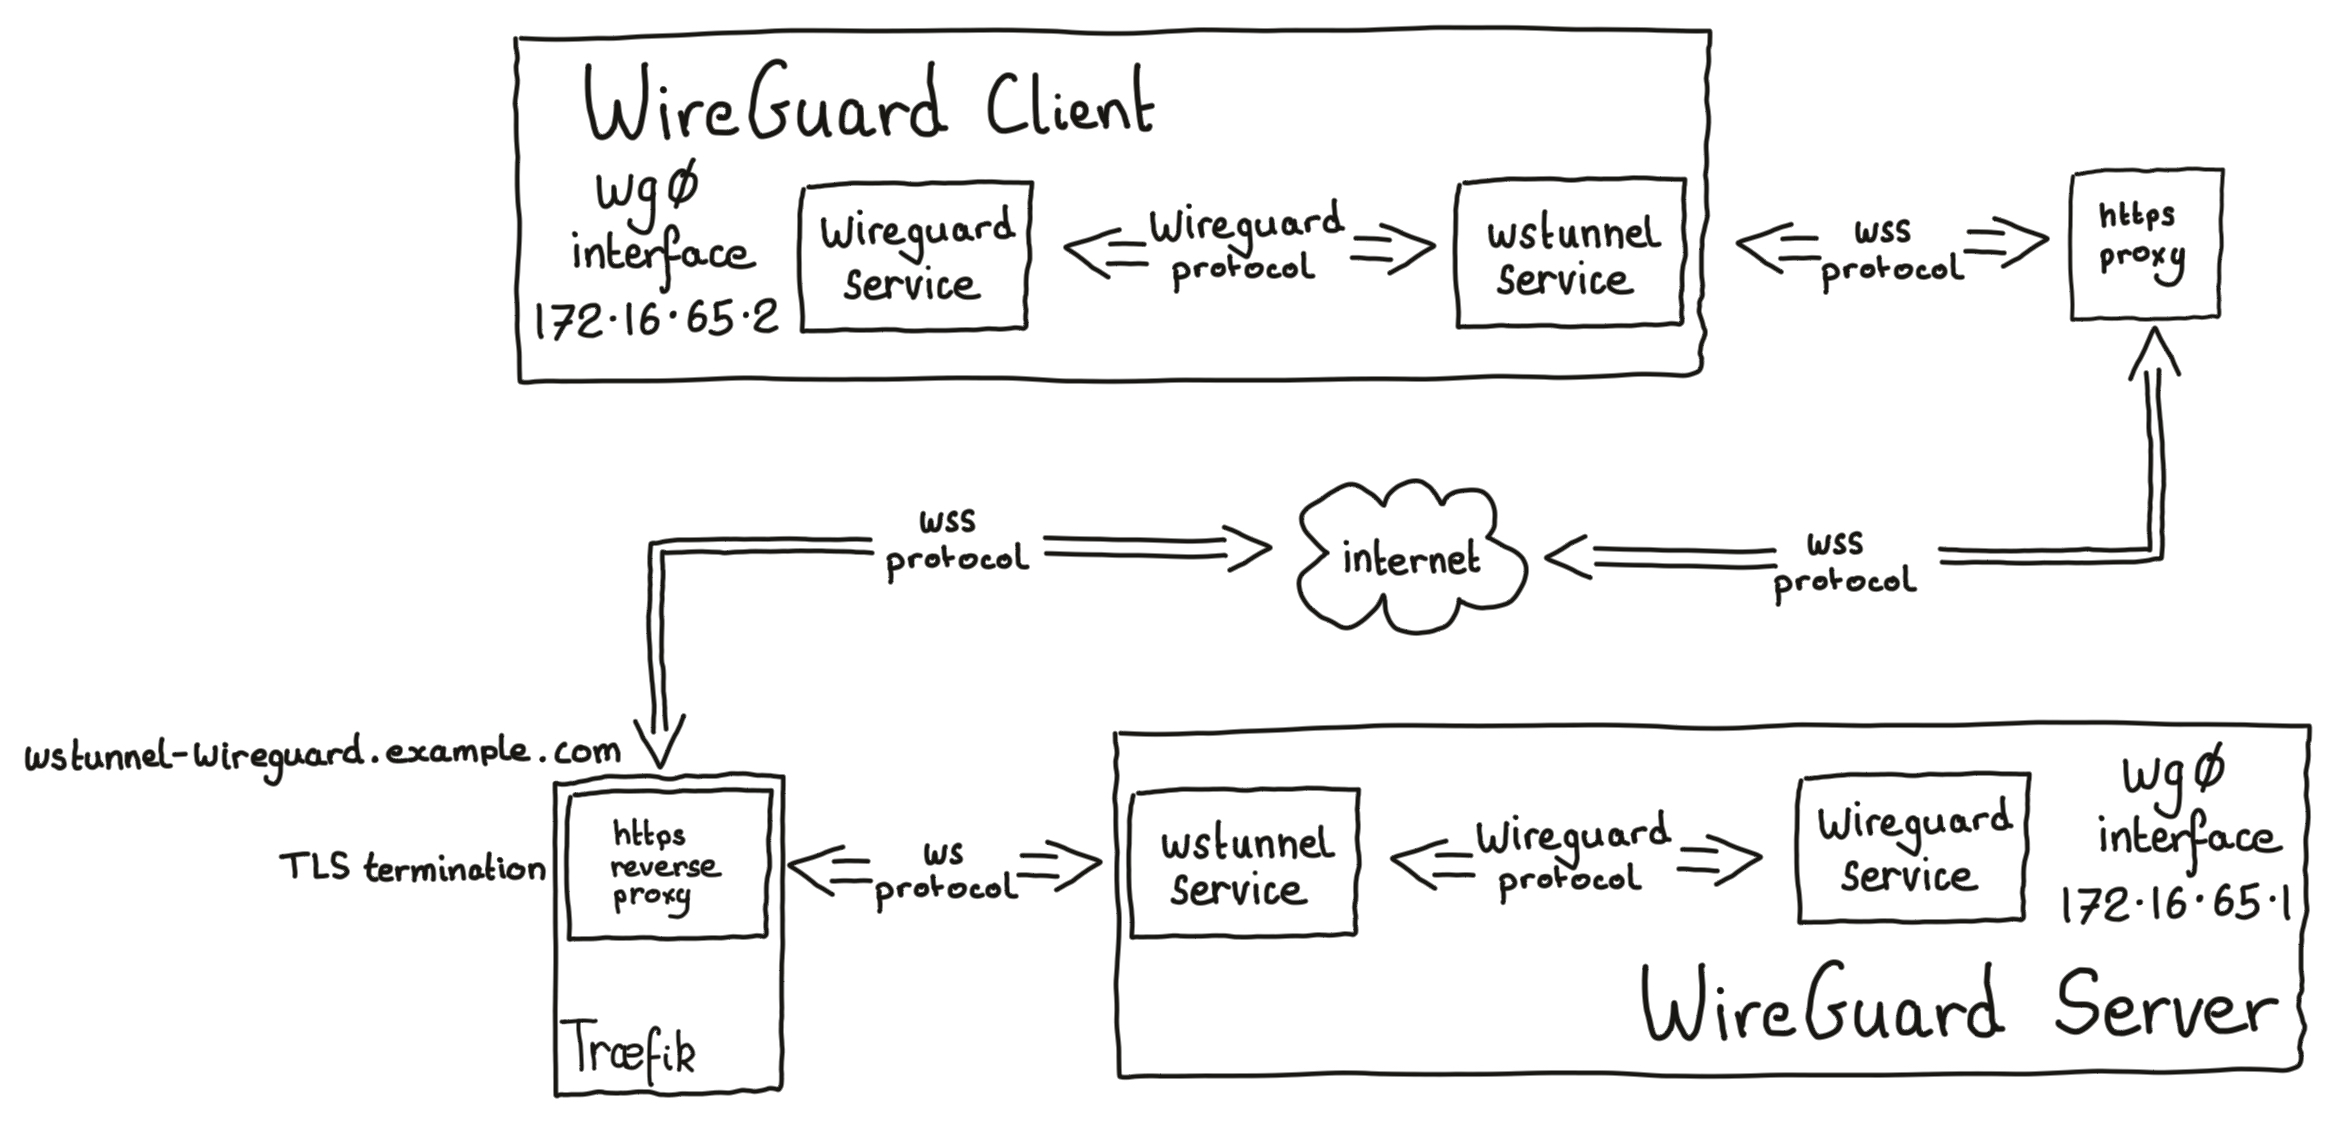 WireGuard Client
wgØ
interface
172.16.65.2
Wireguard
service
Wireguard
protocol
wstunnel
service
wss
protocol
https
proxy
wss
protocol
internet
wss
protocol
wstunnel-wireguard.example.com
TLS termination
https
reverse
proxy
Træfik
ws
protocol
wstunnel
service
Wireguard
protocol
Wireguard
service
wgØ
interface
172.16.65.1
WireGuard Server